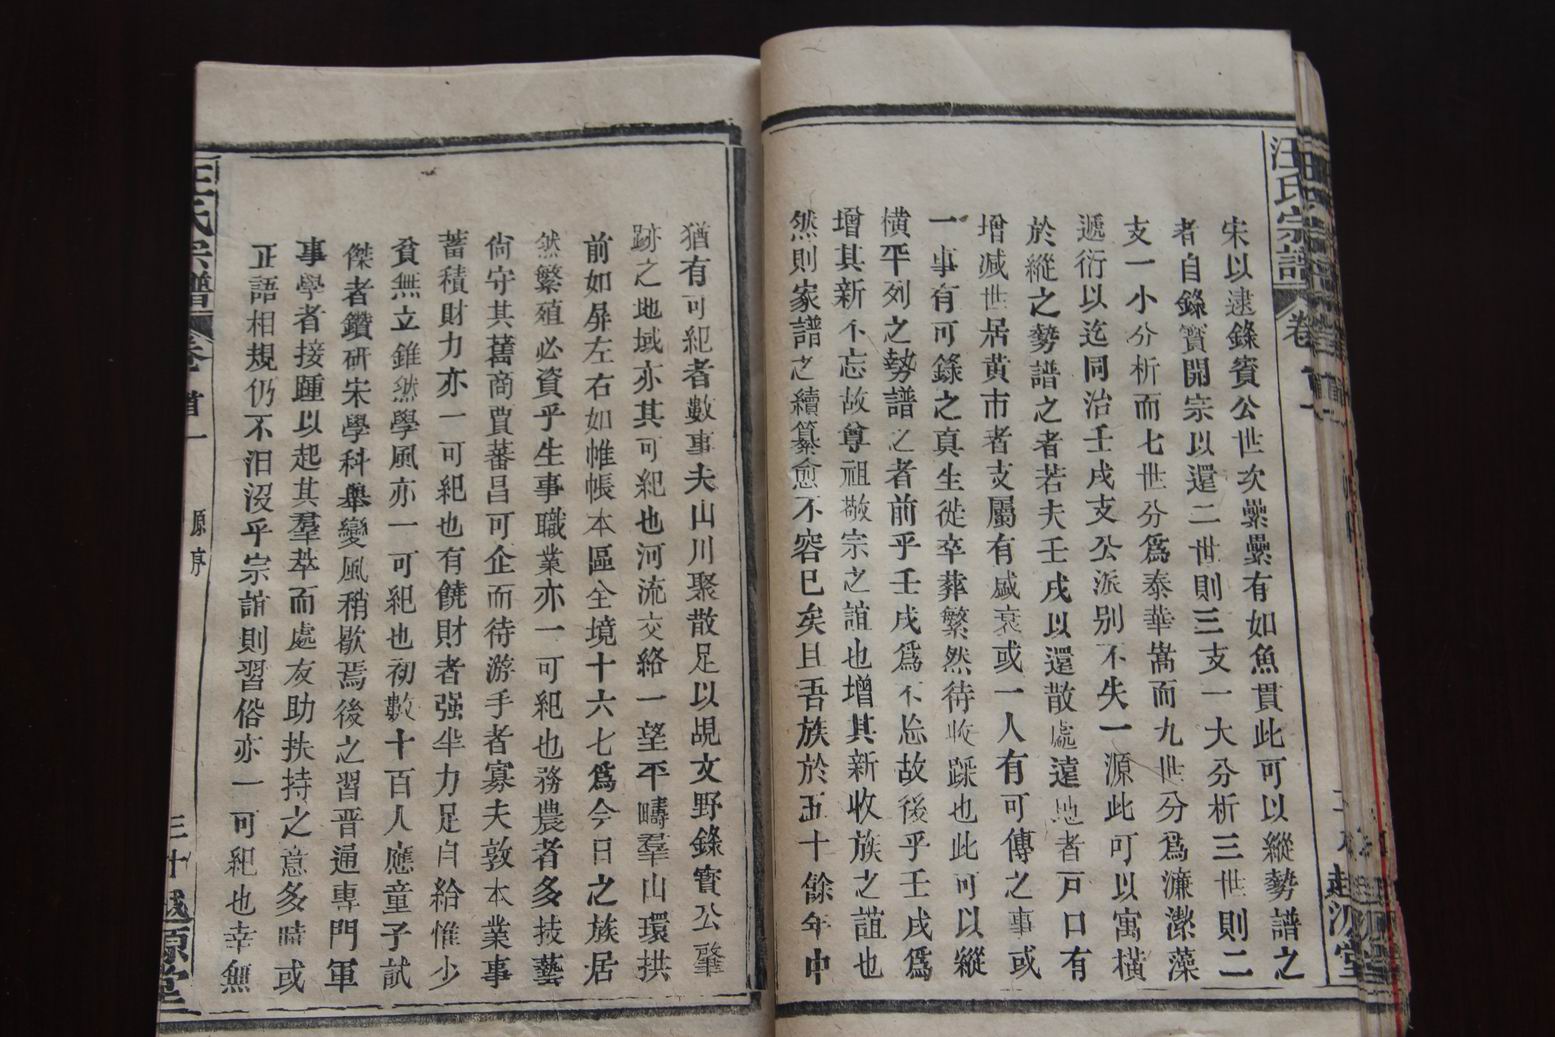 汪氏宗譜
卷首
宋以逮錄賓公世次纍纍有如魚貫此可以縱勢譜之
者自錄賓開宗以還二世則三支一大分析三世則二
支一小分析而七世分爲泰華嵩而九世分爲濂潔藻
遞衍以迄同治壬戌支公派別不失一源此可以寓橫
於縱之勢譜之者若夫壬戌以還散處遠地者戸口有
增減世居黃市者支屬有盛衰或一人有可傳之事或
一事有可錄之真生徙卒葬繁然待收踩也此可以縱
橫平列之勢譜之者前乎壬戌爲不忘故後乎壬戌爲
增其新不忘故尊祖敬宗之誼也增其新收族之誼也
然則家譜之續纂愈不容已矣且吾族於五十餘年中
猶有可紀者數事夫山川聚散足以覘文野錄賓公肇
跡之地域亦其可紀也河流交絡一望平疇羣山環拱
前如屏左右如帷帳本區全境十六七爲今日之族居
然繁殖必資乎生事職業亦一可紀也務農者多技藝
尙守其舊商賈蕃昌可企而待游手者寡夫敦本業事
蓄積財力亦一可紀也有饒財者强半力足自給惟少
貧無立錐然學風亦一可紀也初數十百人應童子試
傑者鑽研宋學科舉變風稍歇焉後之習晋通專門軍
事學者接踵以起其羣萃而處友助扶持之意多時或
正語相規仍不汨沒乎宗誼則習俗亦一可紀也幸無
汪氏宗譜
卷首一
原序
三十
越源堂